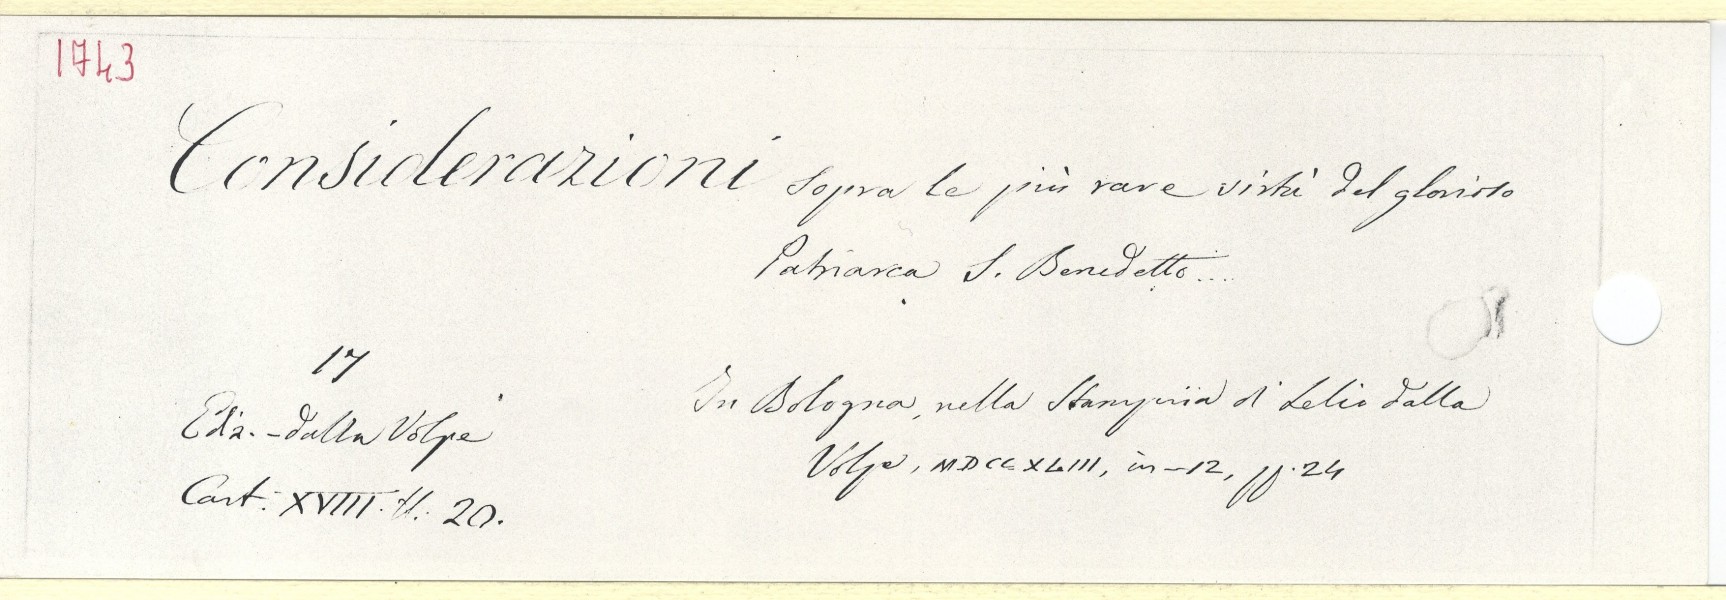 1743
Considerazioni sopra le più rare virtù del glorioso
Patriarca S. Benedetto....
17
Ediz. - dalla Volpe
Cart. XVIII. N. 20.
In Bologna, nella Stamperia di Lelio dalla
Volpe, MDCCXLIII, in-12, pp. 24